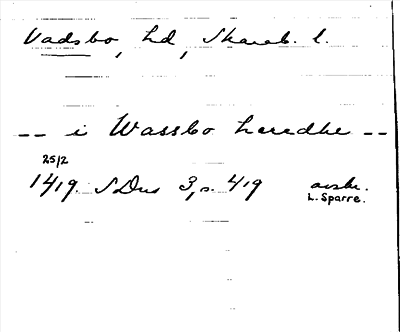 Vadsbo, hd, Skarab. l.
-- i Wassbo heredhe --
25/2
1419. SDns 3, s. 419 avskr.
L. Sparre.